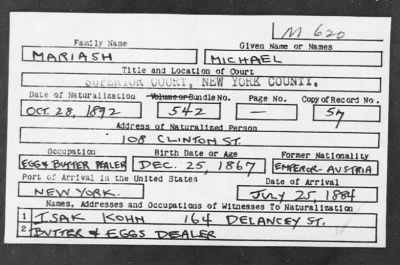 M 620
Family Name Given Name or Names
MARIASH MICHAEL
Title and Location of Court
SUPERIOR COURT, NEW YORK COUNTY.
Date of Naturalization Volume or Bundle No. Page No. Copy of Record No.
OCT. 28, 1892 542 — 57
Address of Naturalized Person
108 CLINTON ST.
Occupation Birth Date or Age Former Nationality
EGGS BUTTER DEALER DEC. 25, 1867 EMPEROR-AUSTRIA
Port of Arrival in the United States Date of Arrival
NEW YORK. JULY 25, 1884
Names, Addresses and Occupations of Witnesses To Naturalization
1 ISAK KOHN 164 DELANCEY ST.
2 BUTTER & EGGS DEALER